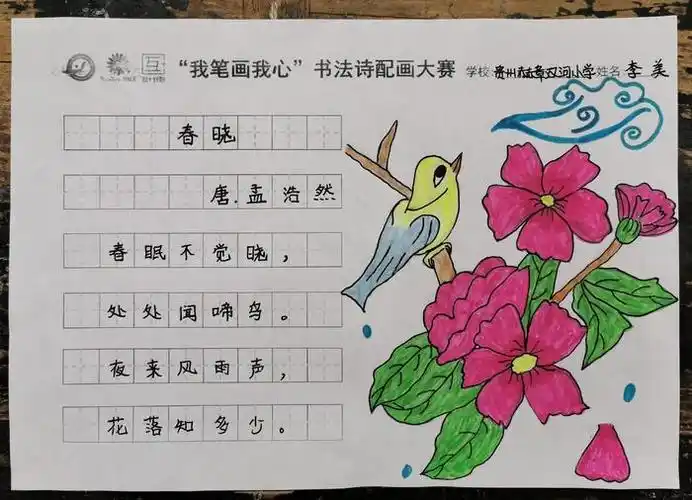 “我笔画我心”书法诗配画大赛 学校 贵州 双河小学 姓名 李美
春晓
唐.孟浩然
春眠不觉晓，
处处闻啼鸟。
夜来风雨声，
花落知多少。